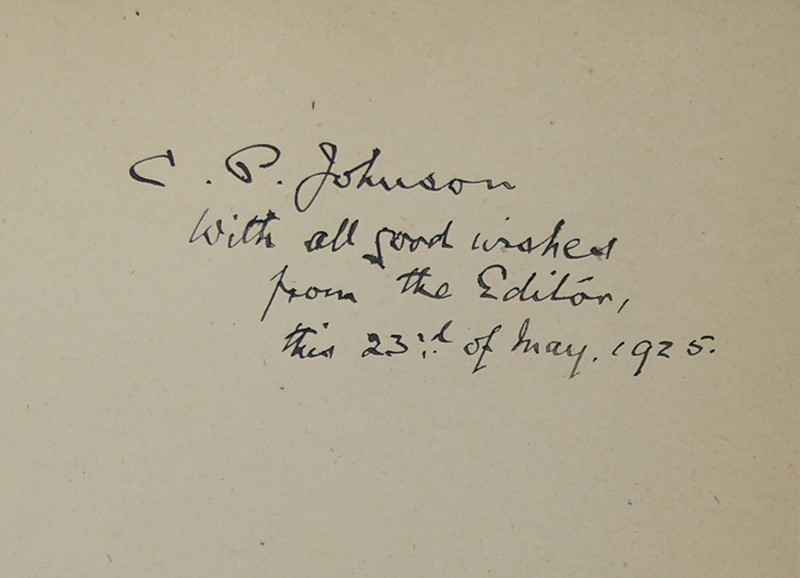 C. P. Johnson
With all good wishes
from the Editor,
this 23rd of May. 1925.